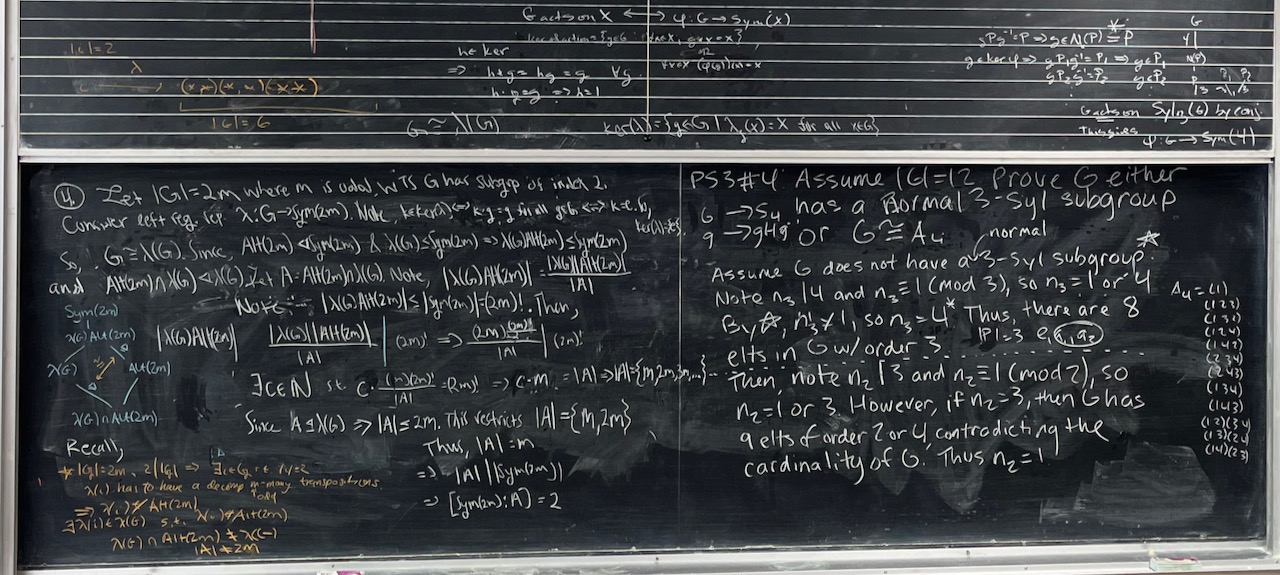 G acts on X ⟷ φ: G → Sym(X)
ker of action = {g∈G | ∀x∈X, g*x = x}
∀x∈X (φ(g))(x) = x
|G|=2
λ
(x x)(x, x)(x x)
|G| = 6
h ∈ ker
⇒ h*g = hg = g ∀g
h·g=g ⇒ h=1
G ≅ λ(G)
ker(λ) = {g∈G | λg(x) = x for all x∈G}
gPg⁻¹=P ⇒ g∈N(P) = P
g∈ker φ ⇒ gP₁g⁻¹ = P₁ ⇒ g∈P₁
gP₂g⁻¹=P₂ g∈P₂
G
4|
N(P)
P
G acts on Syl₃(G) by conj.
This gives
φ: G → Sym(4)
④ Let |G|=2m where m is odd, WTS G has subgrp of index 2.
Consider left reg. rep. λ: G→Sym(2m). Note, k∈ker(λ) ⇔ k·g=g for all g∈G ⇔ k=e.
So, G≅λ(G). Since, Alt(2m) ⊲ Sym(2m) & λ(G)≤Sym(2m) ⇒ λ(G)Alt(2m) ≤ Sym(2m)
and Alt(2m)∩λ(G) ⊲ λ(G). Let A=Alt(2m)∩λ(G). Note, |λ(G)Alt(2m)| = |λ(G)||Alt(2m)| / |A|
Note |λ(G)Alt(2m)| ≤ |Sym(2m)|=(2m)!. Then,
|λ(G)Alt(2m)| |λ(G)||Alt(2m)| / |A| | (2m)! ⇒ (2m)(2m)!/2 / |A| | (2m)!
∃c∈ℕ s.t. c·(m)(2m)!/|A| = (2m)! ⇒ c·m = |A| ⇒ |A|={m,2m,3m,...}
Since A≤λ(G) ⇒ |A|≤2m. This restricts |A|={m,2m}
Thus, |A|=m
⇒ |A| | |Sym(2m)|
⇒ [Sym(2m):A] = 2
Sym(2m)
λ(G)Alt(2m)
λ(G) Alt(2m)
λ(G)∩Alt(2m)
Recall,
* |G|=2m, 2||G| ⇒ ∃i∈G s.t. |i|=2
λ(i) has to have a decomp m-many transpositions.
odd
⇒ λ(i) ∉ Alt(2m)
∃λ(i)∈λ(G) s.t. λ(i)∉Alt(2m)
λ(G)∩Alt(2m) ≠ λ(G)
|A| ≠ 2m
PS3#4: Assume |G|=12. Prove G either
has a normal 3-Syl subgroup
or G≅A₄
G → S₄
g → gHg⁻¹
normal
Assume G does not have a 3-Syl subgroup.
Note n₃ | 4 and n₃≡1 (mod 3), so n₃=1 or 4
By ☆, n₃≠1, so n₃=4* Thus, there are 8
elts in G w/ order 3. |P|=3
Then, note n₂ | 3 and n₂≡1 (mod 2), so
n₂=1 or 3. However, if n₂=3, then G has
9 elts of order 2 or 4, contradicting the
cardinality of G. Thus n₂=1
A₄= (1)
(123)
(132)
(124)
(142)
(234)
(243)
(134)
(143)
(12)(34)
(13)(24)
(14)(23)